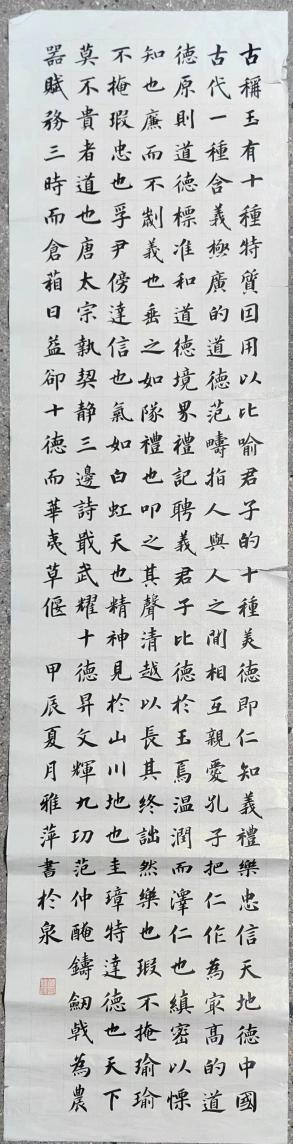 古稱玉有十種特質囙用以比喻君子的十種美德即仁知義禮樂忠信天地德中國
古代一種含義極廣的道德范疇指人與人之間相互親愛孔子把仁作為㝡高的道
德原則道德標准和道德境界禮記聘義君子比德於玉焉温潤而澤仁也縝密以慄
知也廉而不劌義也垂之如隊禮也叩之其聲清越以長其終詘然樂也瑕不掩瑜瑜
不掩瑕忠也孚尹傍達信也氣如白虹天也精神見於山川地也圭璋特達德也天下
莫不貴者道也唐太宗執契静三邊詩戢武耀十德昇文輝九功范仲醃鑄劒戟為農
器賦務三時而倉葙日益卻十德而華夷草偃 甲辰夏月雅萍書於泉